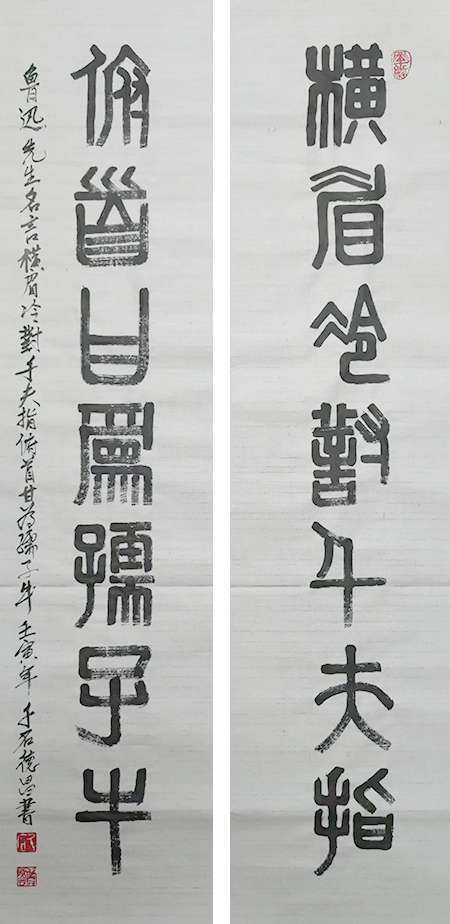 橫眉冷對千夫指
俯首甘爲孺子牛
魯迅先生名言橫眉冷對千夫指俯首甘為孺子牛 壬寅年 于石德昌書